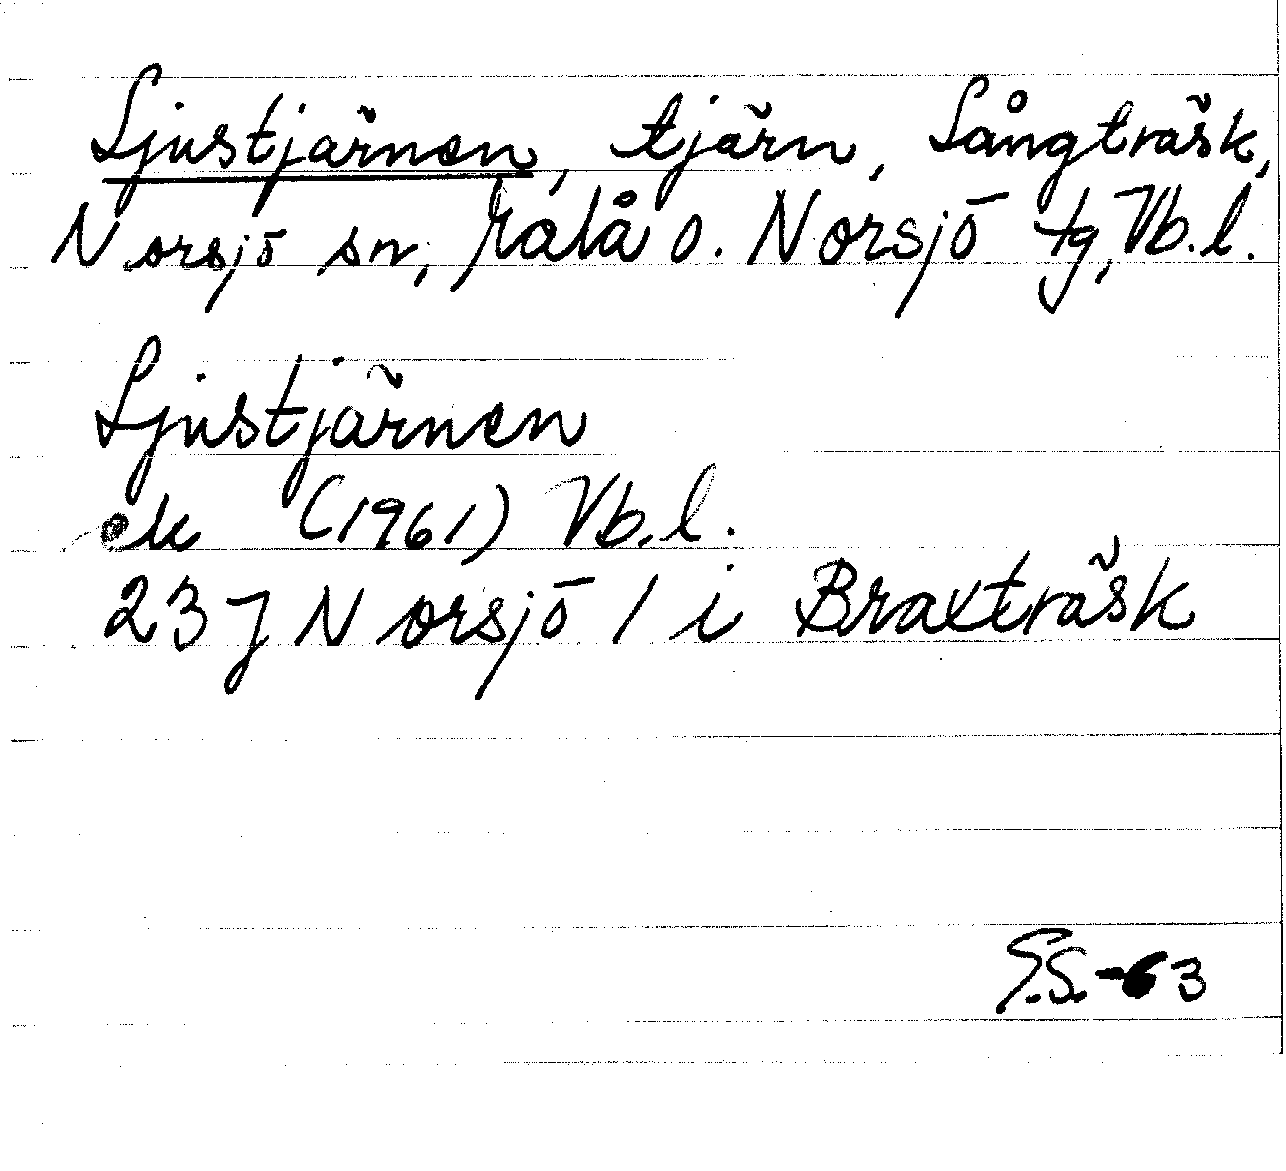 Ljustjärnen, tjärn, Långträsk,
Norsjö sn, Malå o. Norsjö tg, Vb.l.
Ljustjärnen
ek (1961) Vb.l.
23 J Norsjö / i Braxträsk
S.S.-63